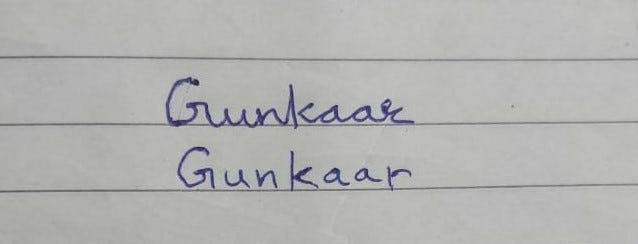 Gunkaar
Gunkaar